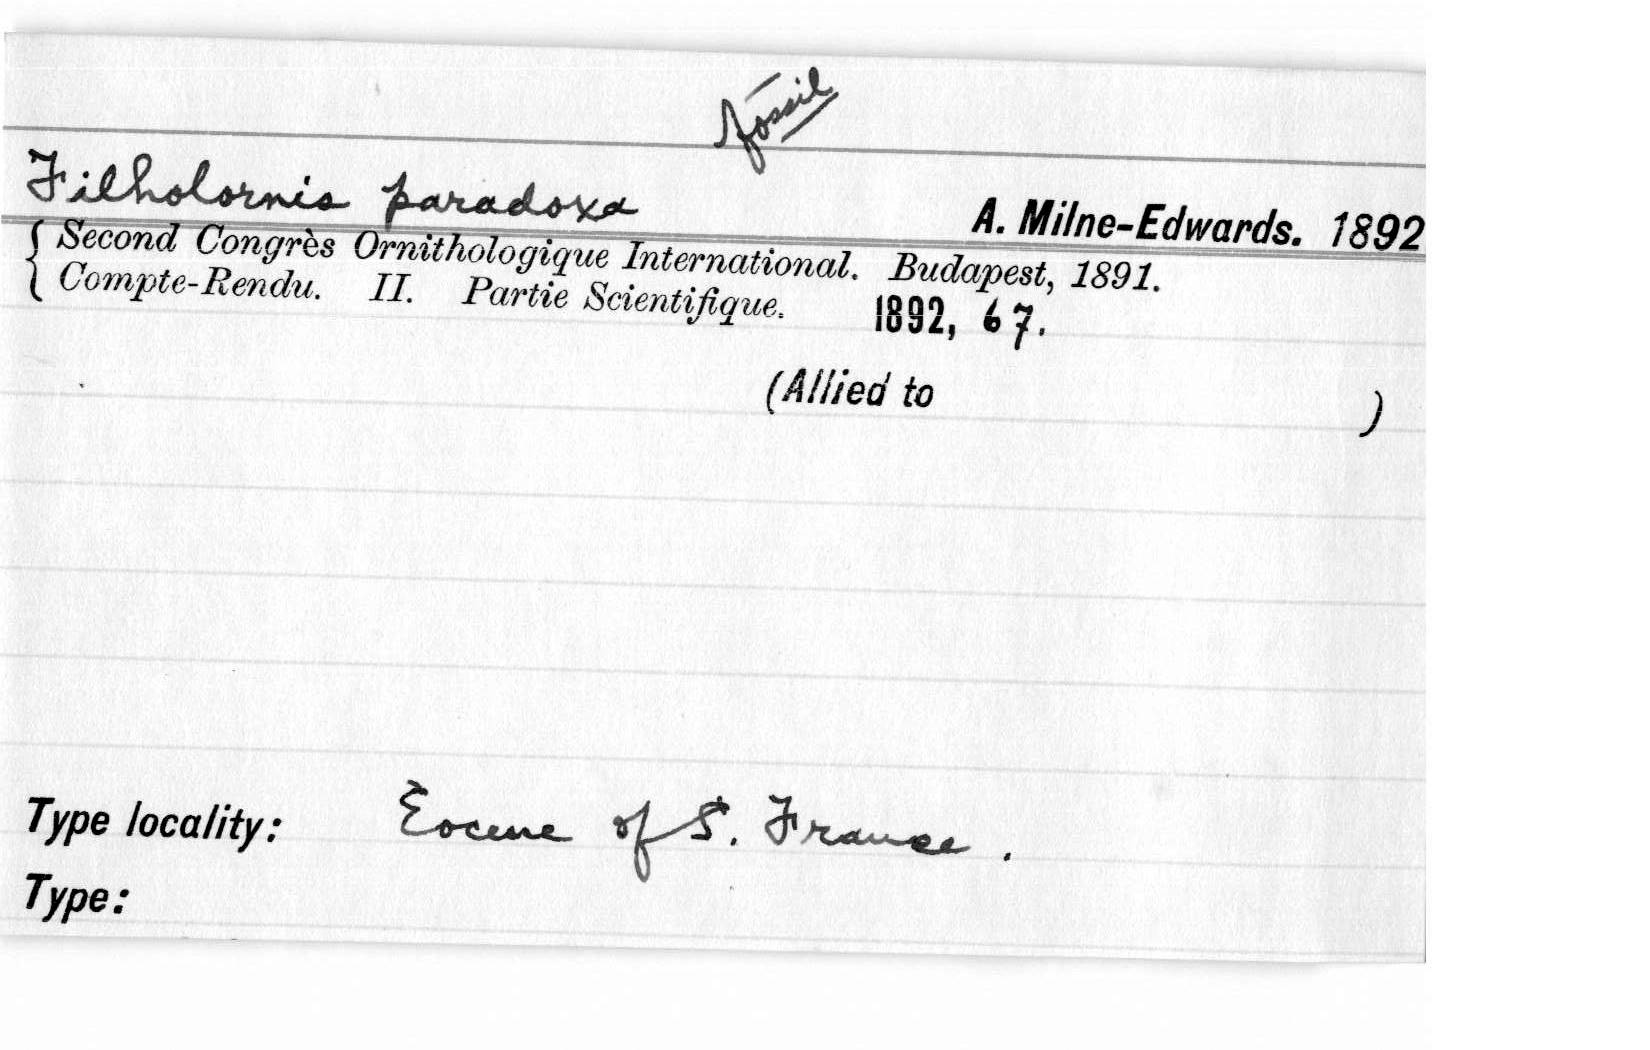 fossil
Filholornis paradoxa
A. Milne-Edwards. 1892
{ Second Congrès Ornithologique International. Budapest, 1891.
Compte-Rendu. II. Partie Scientifique. 1892, 67.
(Allied to )
Type locality: Eocene of S. France.
Type: